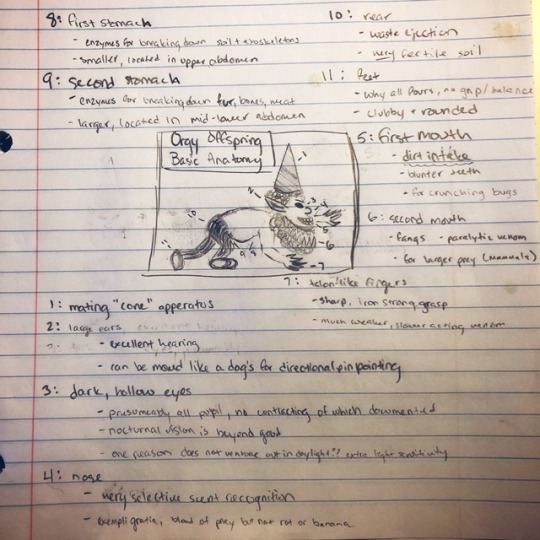 8: first stomach
- enzymes for breaking down soil + exoskeletons
- smaller, located in upper abdomen
9: second stomach
- enzymes for breaking down fur, bones, meat
- larger, located in mid-lower abdomen
10: rear
- waste ejection
- very fertile soil
11: feet
- why all fours, no grip/balance
- clubby + rounded
5: first mouth
- dirt intake
- blunter teeth
- for crunching bugs
6: second mouth
- fangs - paralytic venom
- for larger prey (mammals)
Orgy Offspring
Basic Anatomy
1
2
3
4
5
6
7
8
9
10
11
7: talon like fingers
- sharp, iron strong grasp
- much weaker, slower acting venom
1: mating "cone" apparatus
2: large ears
- excellent hearing
- can be moved like a dog's for directional pin pointing
3: dark, hollow eyes
- presumeably all pupil, no contracting of which documented
- nocturnal vision is beyond good
- one reason does not venture out in daylight?? extra light sensitivity
4: nose
- very selective scent recognition
- exempli gratia, blood of prey but not rot or banana